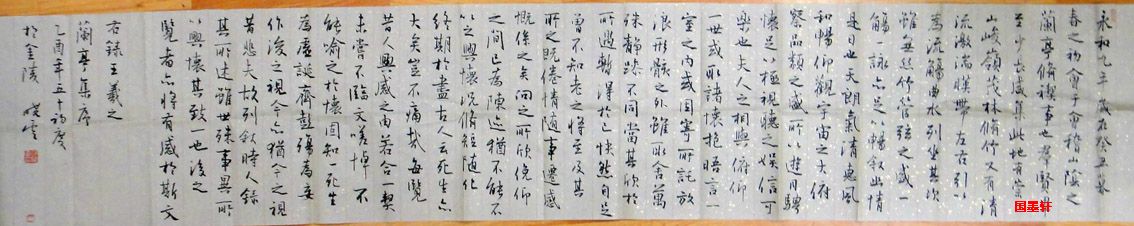 永和九年歲在癸丑暮
春之初會于會稽山陰之
蘭亭脩禊事也群賢畢
至少長咸集此地有崇
山峻嶺茂林脩竹又有清
流激湍暎帶左右引以
為流觴曲水列坐其次
雖無絲竹管弦之盛一
觴一詠亦足以暢敘幽情
是日也天朗氣清惠風
和暢仰觀宇宙之大俯
察品類之盛所以遊目騁
懷足以極視聽之娛信可
樂也夫人之相與俯仰
一世或取諸懷抱晤言一
室之內或因寄所託放
浪形骸之外雖取舍萬
殊靜躁不同當其欣於
所遇暫得於己快然自足
曾不知老之將至及其
所之既倦情隨事遷感
慨係之矣向之所欣俛仰
之間已為陳迹猶不能不
以之興懷況脩短隨化
終期於盡古人云死生亦
大矣豈不痛哉每覽
昔人興感之由若合一契
未嘗不臨文嗟悼不
能喻之於懷固知一死生
為虛誕齊彭殤為妄
作後之視今亦猶今之視
昔悲夫故列敘時人錄
其所述雖世殊事異所
以興懷其致一也後之
覽者亦將有感於斯文
右錄王羲之
蘭亭集序
乙酉年五十初度
於金陵
国墨轩